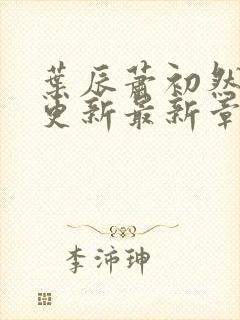 葉辰蕭初然
更新最新章
李沛珅